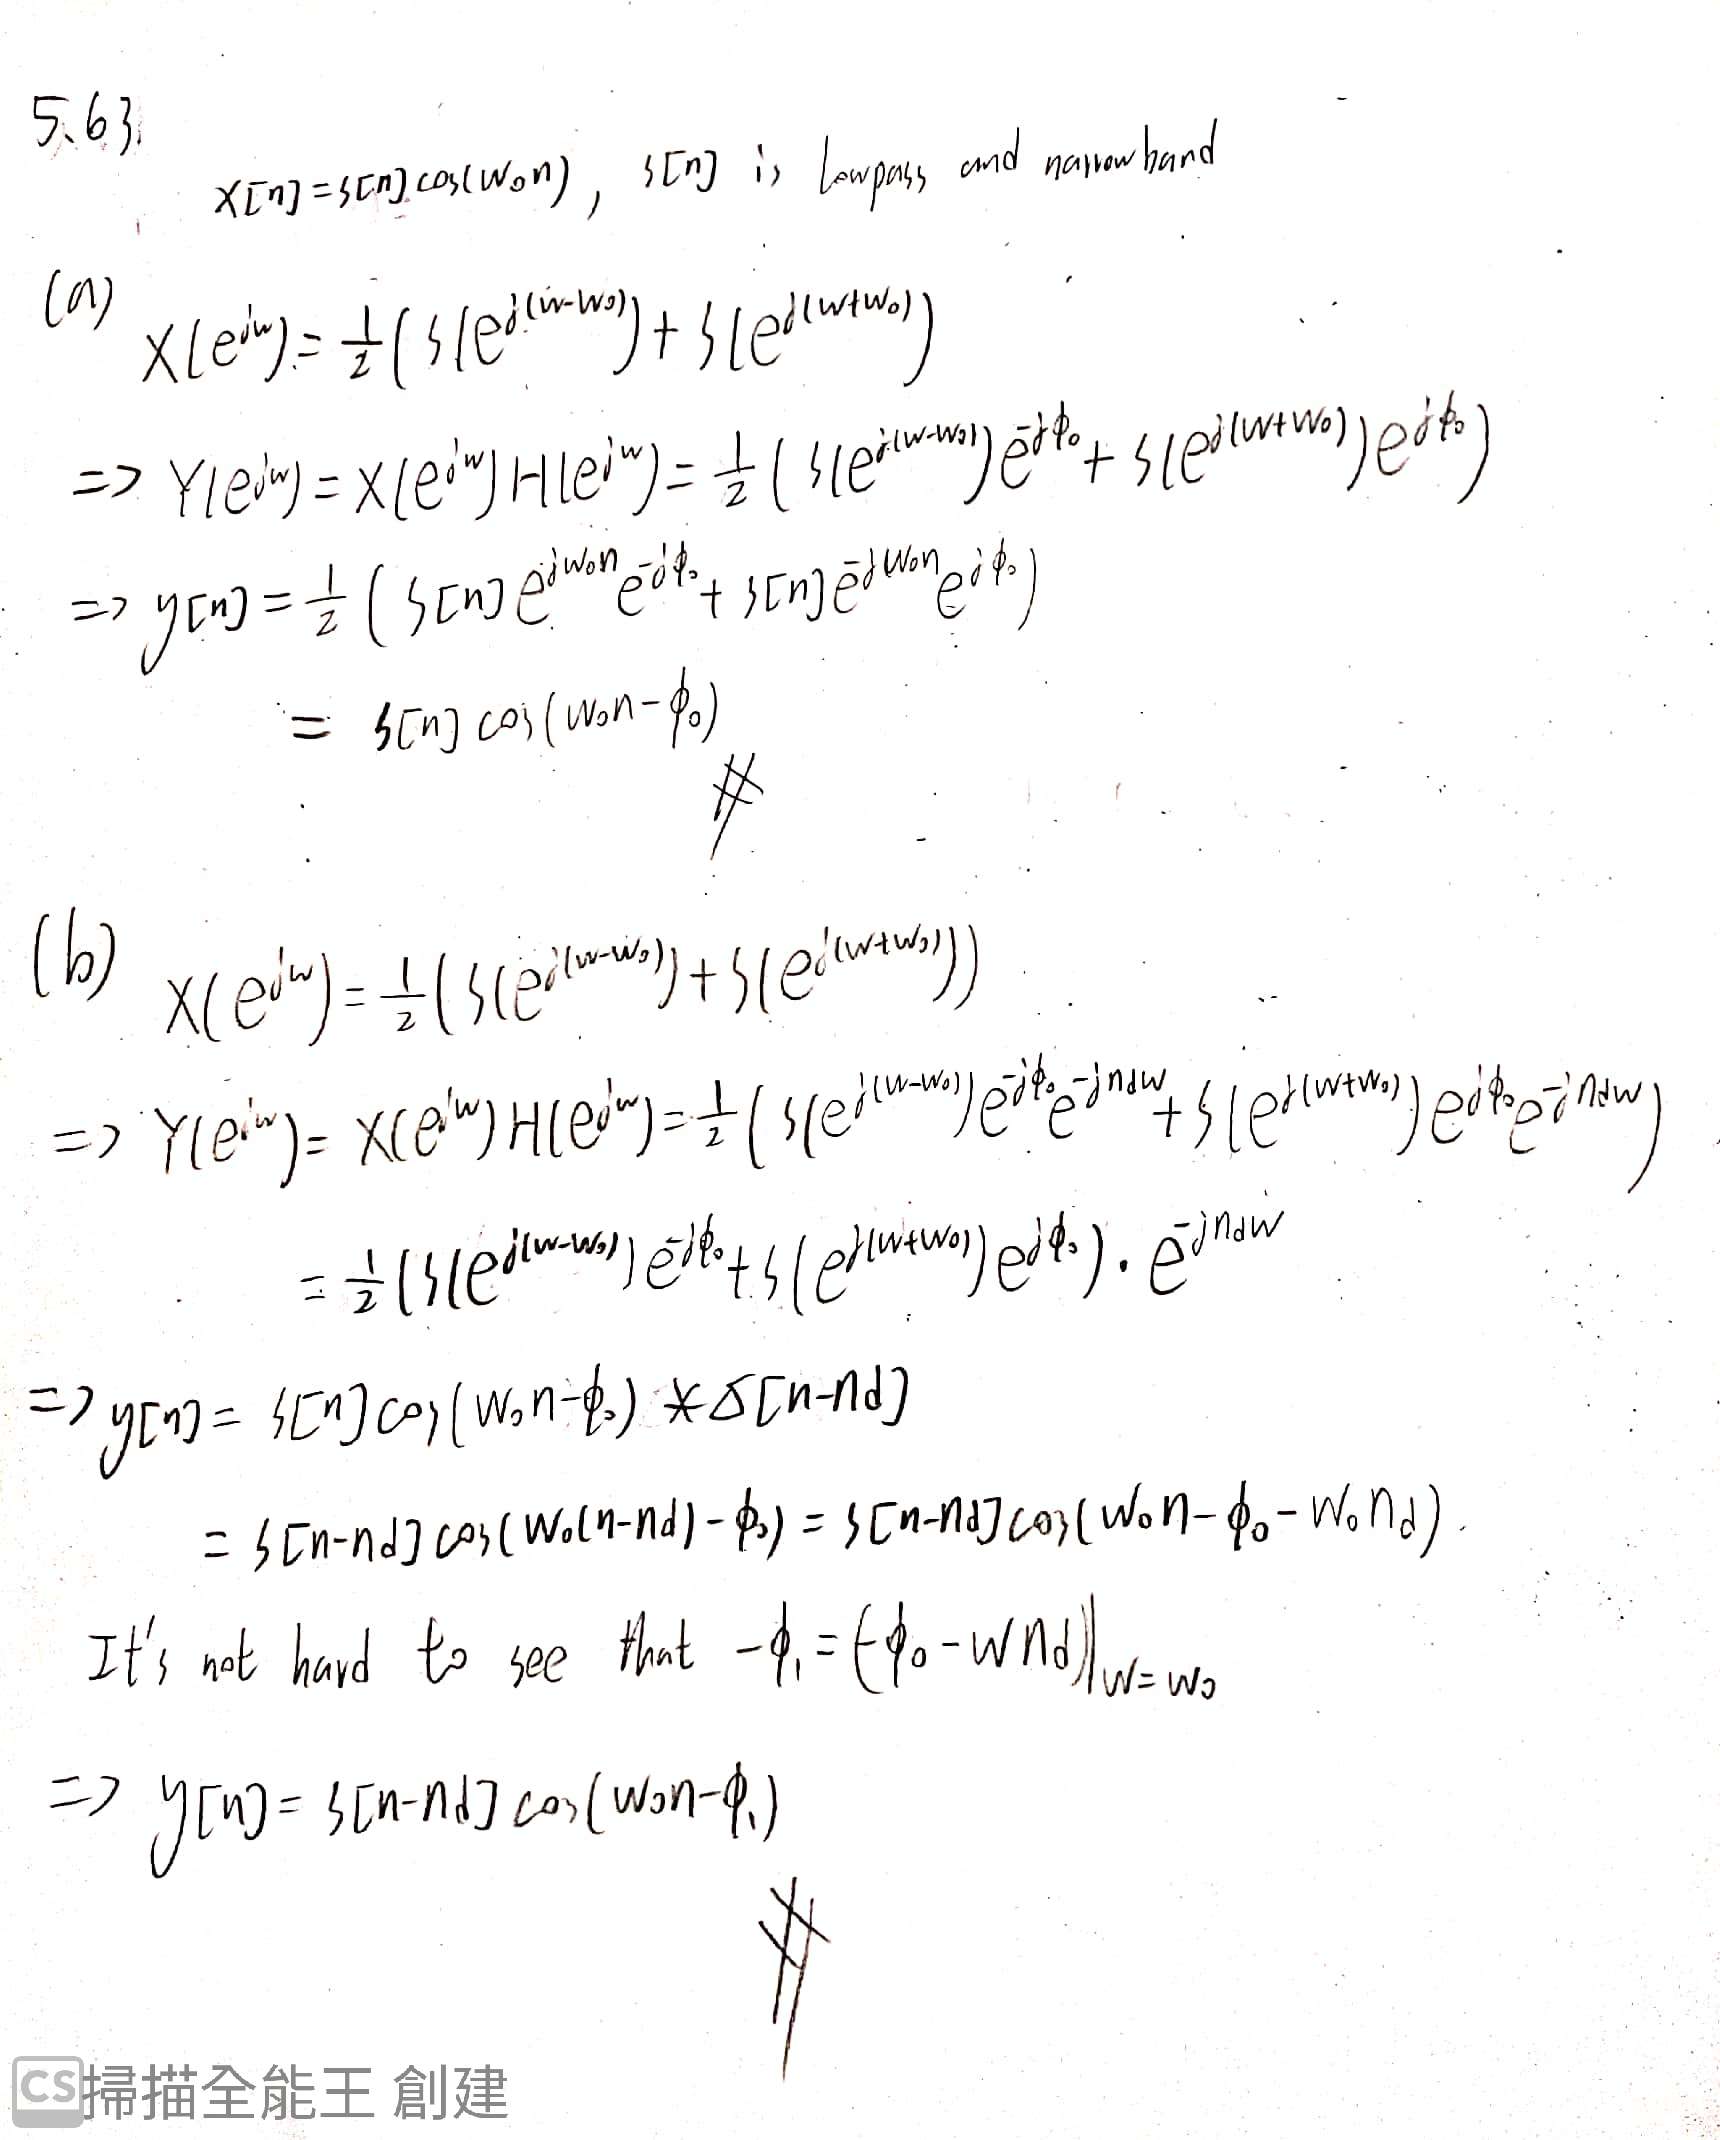 5.63.
x[n]=s[n]cos(w₀n), s[n] is lowpass and narrowband
(a)
X(e^{jw})=\frac{1}{2}(S(e^{j(w-w₀)})+S(e^{j(w+w₀)})
=> Y(e^{jw})=X(e^{jw})H(e^{jw})=\frac{1}{2}(S(e^{j(w-w₀)})e^{-jϕ₀}+S(e^{j(w+w₀)})e^{jϕ₀})
=> y[n]=\frac{1}{2}(s[n]e^{jw₀n}e^{-jϕ₀}+s[n]e^{-jw₀n}e^{jϕ₀})
= s[n]cos(w₀n-ϕ₀)
#
(b)
X(e^{jw})=\frac{1}{2}(S(e^{j(w-w₀)})+S(e^{j(w+w₀)}))
=> Y(e^{jw})=X(e^{jw})H(e^{jw})=\frac{1}{2}(S(e^{j(w-w₀)})e^{-jϕ₀}e^{-jn_dw}+S(e^{j(w+w₀)})e^{jϕ₀}e^{-jn_dw})
=\frac{1}{2}(S(e^{j(w-w₀)})e^{-jϕ₀}+S(e^{j(w+w₀)})e^{jϕ₀})·e^{-jn_dw}
=> y[n]=s[n]cos(w₀n-ϕ₀)*δ[n-n_d]
=s[n-n_d]cos(w₀(n-n_d)-ϕ₀)=s[n-n_d]cos(w₀n-ϕ₀-w₀n_d).
It's not hard to see that -ϕ₁=(-ϕ₀-wn_d)|_{w=w₀}
=> y[n]=s[n-n_d]cos(w₀n-ϕ₁)
#
CS掃描全能王 創建